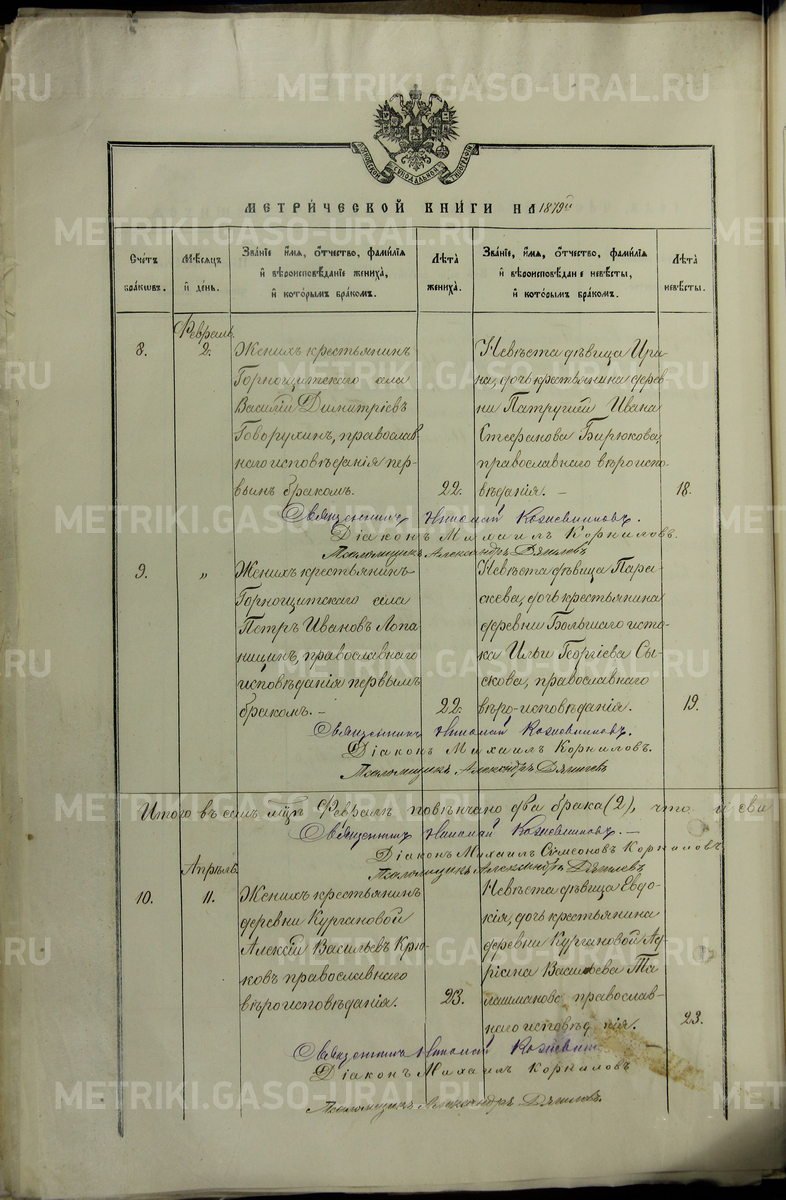 METRIKI.GASO-URAL.RU
МОСКОВСКОЙ СѴНОДАЛЬНОЙ ТИПОГРАФІИ
МЕТРИ́ЧЕСКОЙ КНИ́ГИ НА 1879й
Сче́тъ бра́кωвъ.
Мѣ́сяцъ и҆ де́нь.
Зва́нїе и҆́мя, ѻ҆́тчество, фамѝлїя
и҆ вѣроисповѣ́данїе жениха̀,
и҆ кото́рымъ бра́комъ.
Лѣ́та жениха̀.
Зва́нїе, и҆́мя, ѻ҆́тчество, фамѝлїя
и҆ вѣроисповѣ́данїе невѣ́сты,
и҆ кото́рымъ бра́комъ.
Лѣ́та невѣ́сты.
Февраль.
8. 2.
Женихъ крестьянинъ
Горнощитскаго села
Василій Димитріевъ
Говорухинъ, православ
наго исповѣданія пер-
вымъ бракомъ.
22.
Невѣста дѣвица Ири
на, дочь крестьянина дерев
ни Патрушей Ивана
Стефанова Бирюкова,
православнаго вѣроиспо
вѣданія. –
18.
Священникъ Николай
Діаконъ Михаилъ Корниловъ.
Псаломщикъ Александръ
9. „
Женихъ крестьянинъ
Горнощитскаго села
Петръ Ивановъ Лопа
ницинъ, православнаго
исповѣданія первымъ
бракомъ. –
22.
Невѣста дѣвица Пара
скева, дочь крестьянина
деревни Большаго исто
ка Ильи Георгіева Сы
скова, православнаго
вѣро-исповѣданія.
19.
Священникъ Николай
Діаконъ Михаилъ Корниловъ.
Псаломщикъ Александръ
Итого въ семъ мцѣ Февралѣ повѣнчано два брака (2), что и сви
Священникъ Николай
Діаконъ Михаилъ Сѵмеоновъ Корниловъ
Псаломщикъ Александръ
Апрѣль.
10. 11.
Женихъ крестьянинъ
деревни Кургановой
Алексій Васильевъ Крю-
ковъ православнаго
вѣроисповѣданія.
23.
Невѣста дѣвица Евдо
кія, дочь крестьянина
деревни Кургановой Ад
ріана Васильева Та
лашманова православ-
наго исповѣд нія.
23.
Священникъ Николай
Діаконъ Михаилъ Корниловъ
Псаломщикъ Александръ